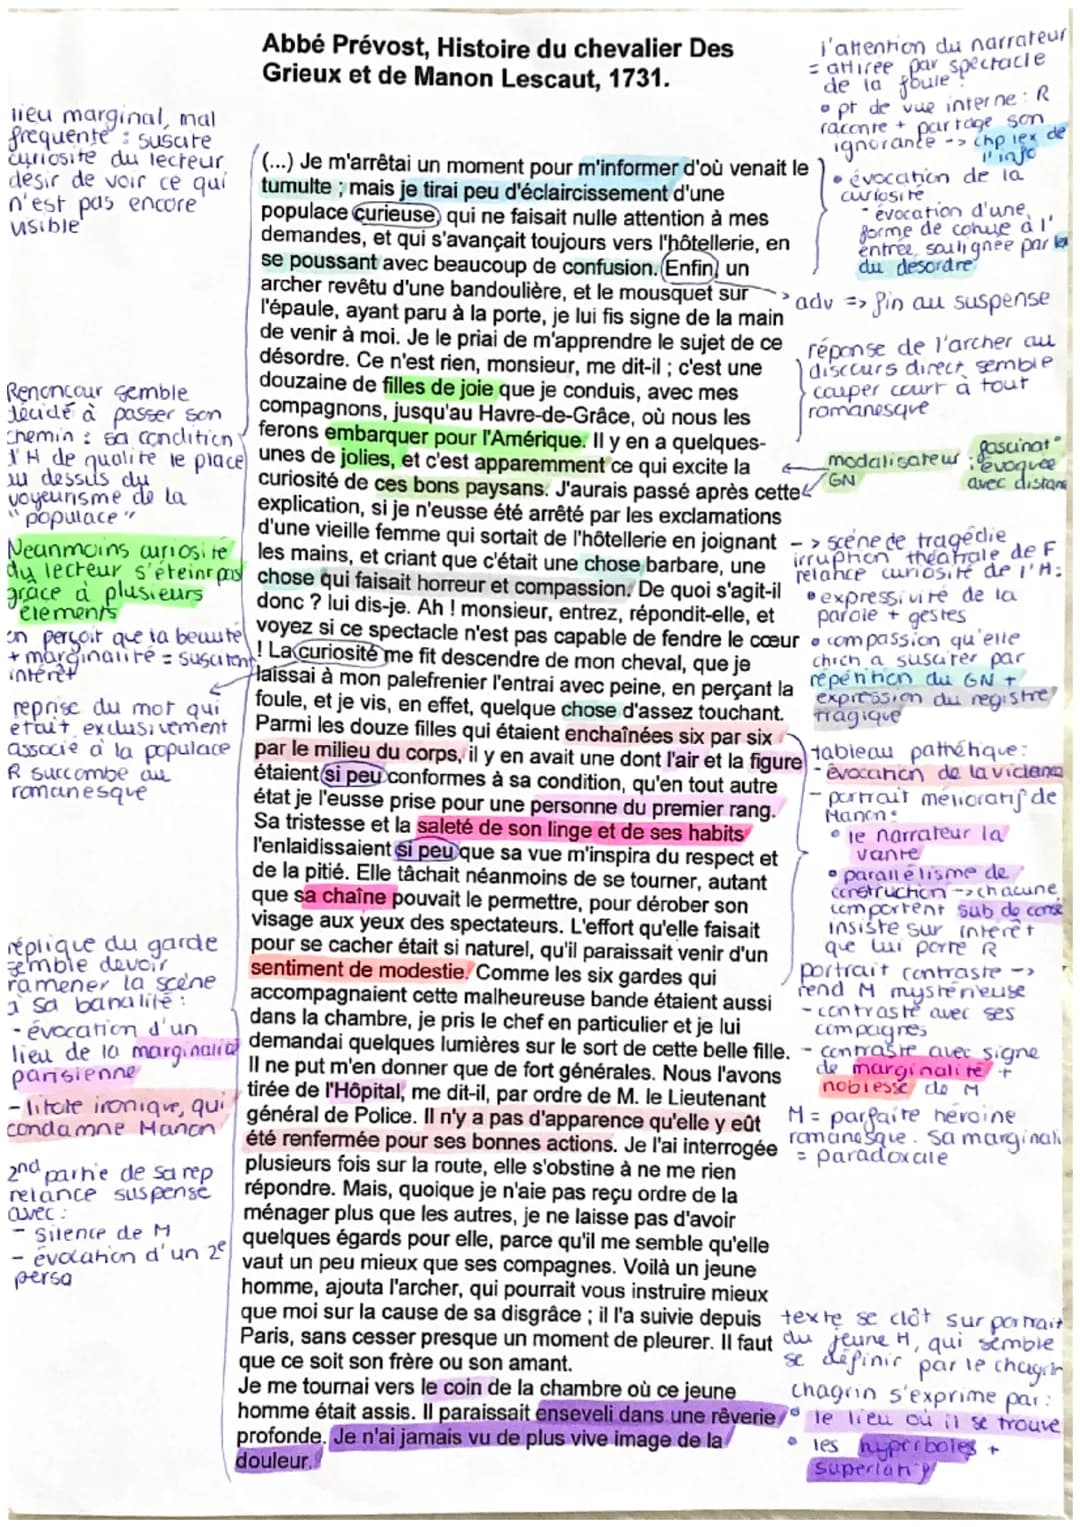 Abbé Prévost, Histoire du chevalier Des
Grieux et de Manon Lescaut, 1731.
lieu marginal, mal
fréquenté : suscite
curiosité du lecteur,
désir de voir ce qui
n'est pas encore
visible
Renoncour semble
décidé à passer son
chemin : sa condition
d'H de qualité le place
au dessus du
voyeurisme de la
"populace"
Néanmoins curiosité
du lecteur s'éteint pas
grâce à plusieurs
éléments
on perçoit que la beauté
+ marginalité = suscitent
intérêt
reprise du mot qui
était exclusivement
associé à la populace
R succombe au
romanesque
réplique du garde
semble devoir
ramener la scène
à sa banalité :
- évocation d'un
lieu de la marginalité
parisienne
- litote ironique, qui
condamne Manon
2nd partie de sa rep
relance suspense
avec :
- silence de M
- évocation d'un 2e
perso
(...) Je m'arrêtai un moment pour m'informer d'où venait le
tumulte ; mais je tirai peu d'éclaircissement d'une
populace curieuse, qui ne faisait nulle attention à mes
demandes, et qui s'avançait toujours vers l'hôtellerie, en
se poussant avec beaucoup de confusion. Enfin, un
archer revêtu d'une bandoulière, et le mousquet sur
l'épaule, ayant paru à la porte, je lui fis signe de la main
de venir à moi. Je le priai de m'apprendre le sujet de ce
désordre. Ce n'est rien, monsieur, me dit-il ; c'est une
douzaine de filles de joie que je conduis, avec mes
compagnons, jusqu'au Havre-de-Grâce, où nous les
ferons embarquer pour l'Amérique. Il y en a quelques-
unes de jolies, et c'est apparemment ce qui excite la
curiosité de ces bons paysans. J'aurais passé après cette
explication, si je n'eusse été arrêté par les exclamations
d'une vieille femme qui sortait de l'hôtellerie en joignant
les mains, et criant que c'était une chose barbare, une
chose qui faisait horreur et compassion. De quoi s'agit-il
donc ? lui dis-je. Ah ! monsieur, entrez, répondit-elle, et
voyez si ce spectacle n'est pas capable de fendre le cœur
! La curiosité me fit descendre de mon cheval, que je
laissai à mon palefrenier l'entrai avec peine, en perçant la
foule, et je vis, en effet, quelque chose d'assez touchant.
Parmi les douze filles qui étaient enchaînées six par six
par le milieu du corps, il y en avait une dont l'air et la figure
étaient si peu conformes à sa condition, qu'en tout autre
état je l'eusse prise pour une personne du premier rang.
Sa tristesse et la saleté de son linge et de ses habits
l'enlaidissaient si peu que sa vue m'inspira du respect et
de la pitié. Elle tâchait néanmoins de se tourner, autant
que sa chaîne pouvait le permettre, pour dérober son
visage aux yeux des spectateurs. L'effort qu'elle faisait
pour se cacher était si naturel, qu'il paraissait venir d'un
sentiment de modestie. Comme les six gardes qui
accompagnaient cette malheureuse bande étaient aussi
dans la chambre, je pris le chef en particulier et je lui
demandai quelques lumières sur le sort de cette belle fille.
Il ne put m'en donner que de fort générales. Nous l'avons
tirée de l'Hôpital, me dit-il, par ordre de M. le Lieutenant
général de Police. Il n'y a pas d'apparence qu'elle y eût
été renfermée pour ses bonnes actions. Je l'ai interrogée
plusieurs fois sur la route, elle s'obstine à ne me rien
répondre. Mais, quoique je n'aie pas reçu ordre de la
ménager plus que les autres, je ne laisse pas d'avoir
quelques égards pour elle, parce qu'il me semble qu'elle
vaut un peu mieux que ses compagnes. Voilà un jeune
homme, ajouta l'archer, qui pourrait vous instruire mieux
que moi sur la cause de sa disgrâce ; il l'a suivie depuis
Paris, sans cesser presque un moment de pleurer. Il faut
que ce soit son frère ou son amant.
Je me tournai vers le coin de la chambre où ce jeune
homme était assis. Il paraissait enseveli dans une rêverie
profonde. Je n'ai jamais vu de plus vive image de la
douleur.
l'attention du narrateur
= attirée par spectacle
de la foule :
• pt de vue interne : R
raconte + partage son
ignorance -> chp lex de
l'info
• évocation de la
curiosité
- évocation d'une
forme de cohue à l'
entrée, soulignée par le
du désordre
adv => fin au suspense
réponse de l'archer au
discours direct, semble
couper court à tout
romanesque
modalisateur : fascinat°
GN évoquée
avec distance
-> scène de tragédie
irruption théâtrale de F
relance curiosité de l'H :
• expressivité de la
parole + gestes
• compassion qu'elle
chrch a susciter par
répétition du GN +
expression du registre
tragique
tableau pathétique :
- évocation de la violence
- portrait mélioratif de
Manon :
• le narrateur la
vante
• parallélisme de
construction -> chacune
comportent sub de consé
insiste sur intérêt
que lui porte R
portrait contrasté ->
rend M mystérieuse
- contraste avec ses
compagnes
- contraste avec signe
de marginalité +
noblesse de M
M = parfaite héroïne
romanesque. Sa marginali
= paradoxale
texte se clôt sur portrait
du jeune H, qui semble
se définir par le chagrin
chagrin s'exprime par :
• le lieu où il se trouve
• les hyperboles +
superlatif